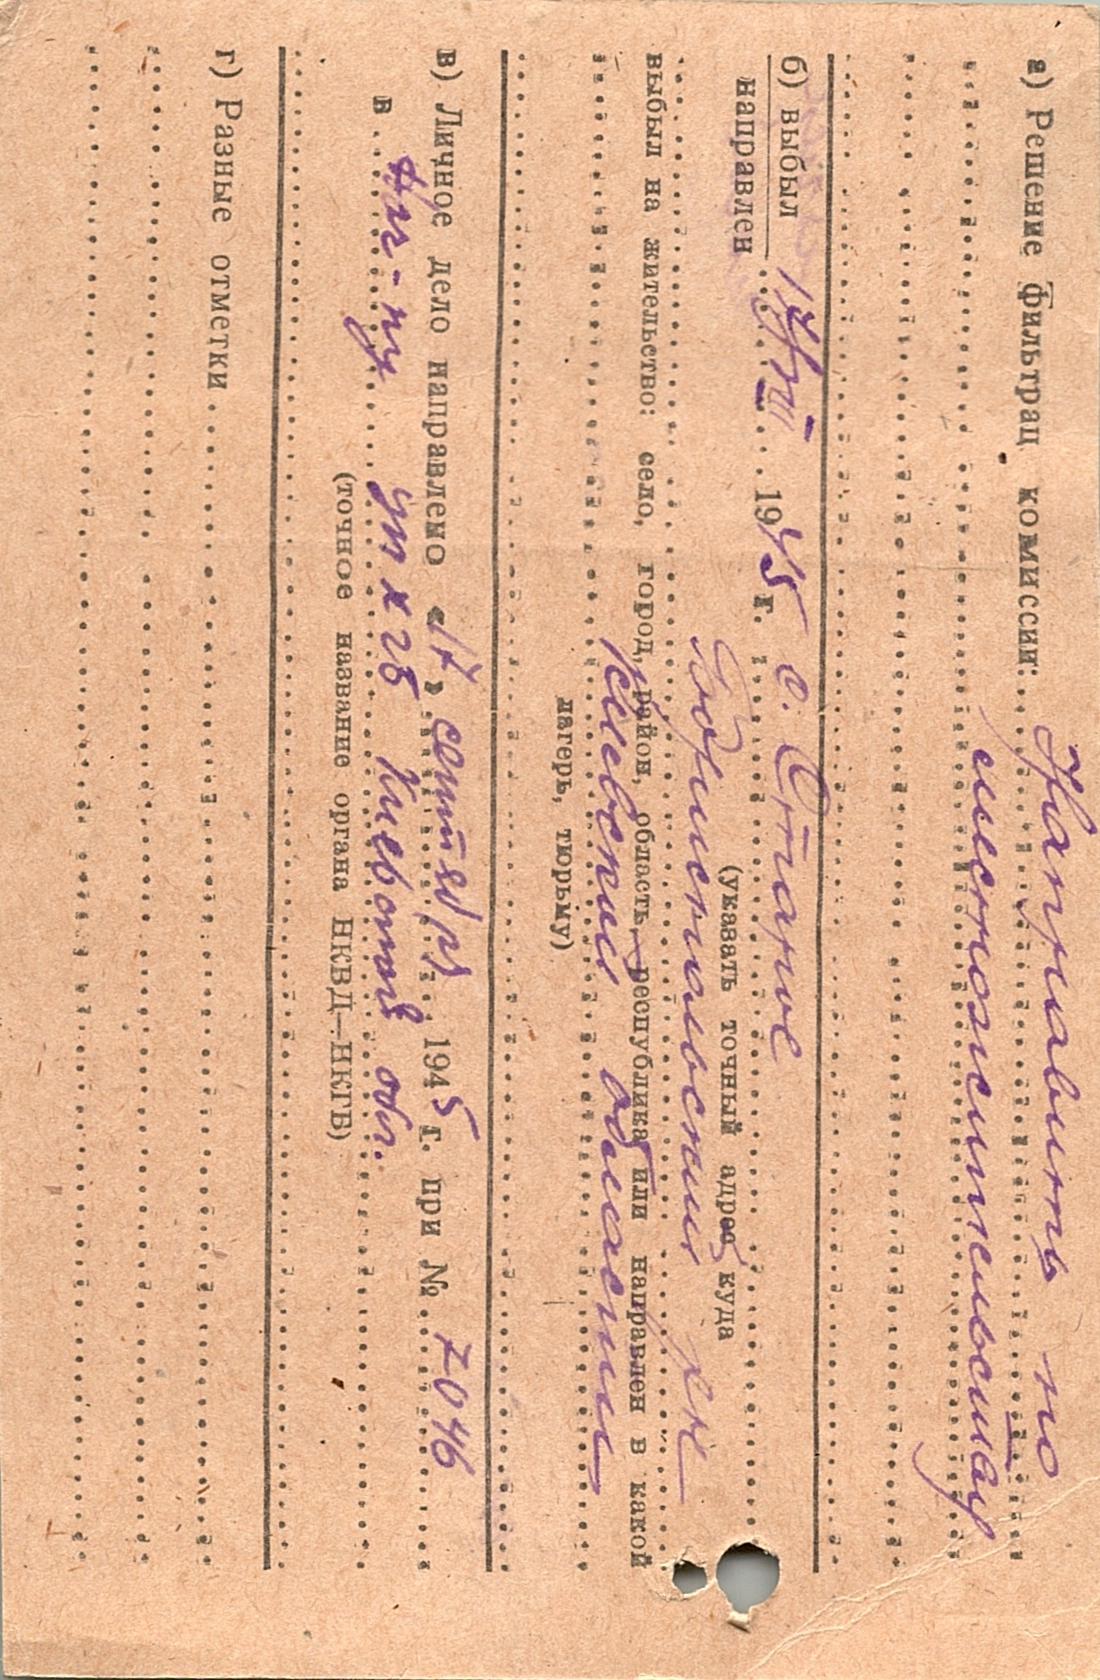 а) Решение фильтрац комиссии: Направить по
местожительству
б) выбыл
направлен 17/VIII 1945 г. с. Старое
(указать точный адрес куда
Бориспольский р-н
выбыл на жительство: село, город, район, область, республика или направлен в какой
Киевской области
лагерь, тюрьму)
в) Личное дело направлено «17» сентября 1945 г. при № 7046
в УНКГБ Киевской обл.
(точное название органа НКВД—НКГБ)
г) Разные отметки